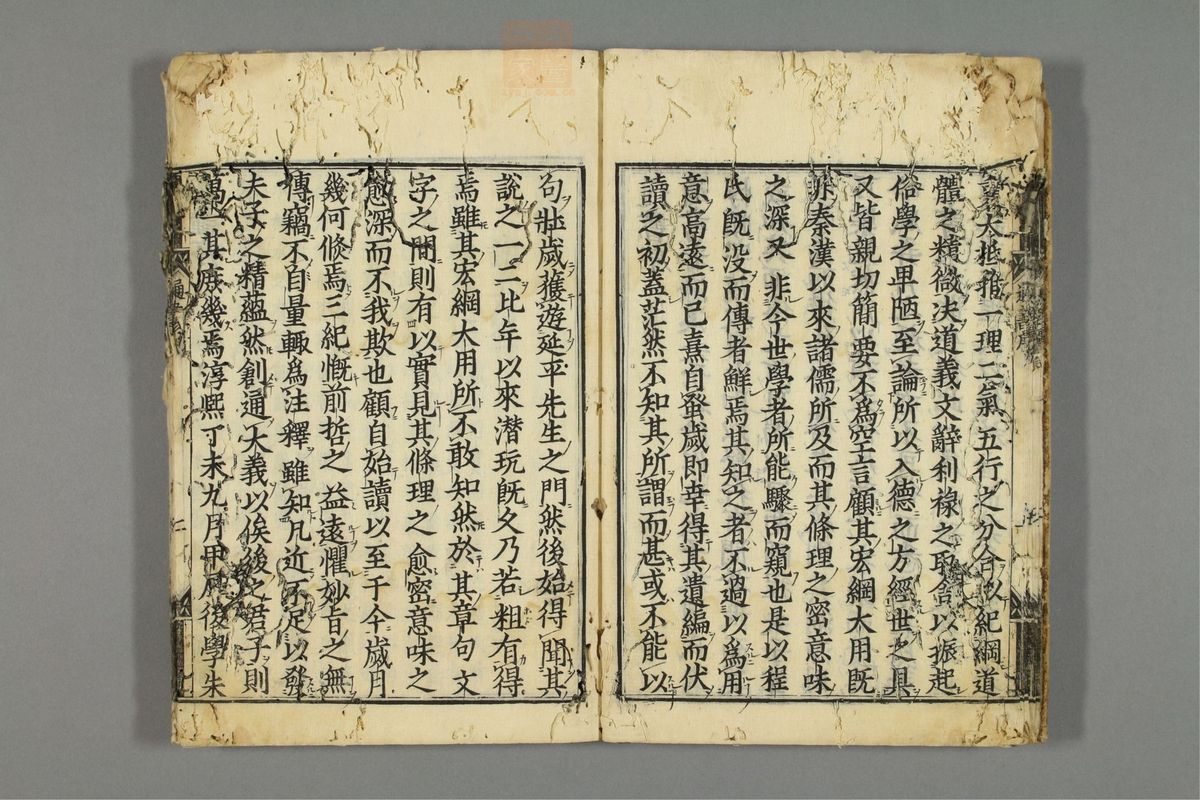 大抵推一理二氣五行之分合以紀綱道
體之精微决道義文辭利禄之取舎以振起
俗學之卑陋至論所以入德之方經世之具
又皆親切簡要不為空言顧其宏綱大用既
非秦漢以來諸儒所及而其條理之密意味
之深又非今世學者所能驟而窺也是以程
氏既没而傳者鮮焉其知之者不過以為用
意高遠而已熹自蚤歲即幸得其遺編而伏
讀之初蓋茫然不知其所謂而甚或不能以
句壯歲獲遊延平先生之門然後始得聞其
說之一二比年以來潜玩既久乃若粗有得
焉雖其宏綱大用所不敢知然於其章句文
字之間則有以實見其條理之愈密意味之
愈深而不我欺也顧自始讀以至于今歲月
幾何倐焉三紀慨前哲之益遠懼妙旨之無
傳竊不自量輙為注釋雖知凡近不足以發
夫子之精蘊然創通大義以俟後之君子則
萬一其庶幾焉淳熈丁未九月甲辰後學朱